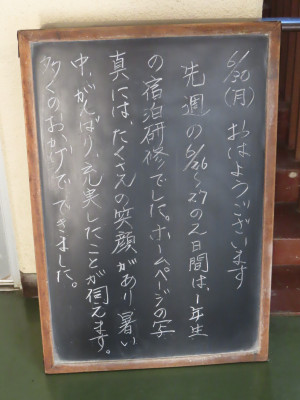 6/30(月) おはようございます
先週の6/26〜27の2日間は、1年生
の宿泊研修でした。ホームページの写
真には、たくさんの笑顔があり、暑い
中、がんばり、充実したことが伺えます。
多くのおかげでできました。